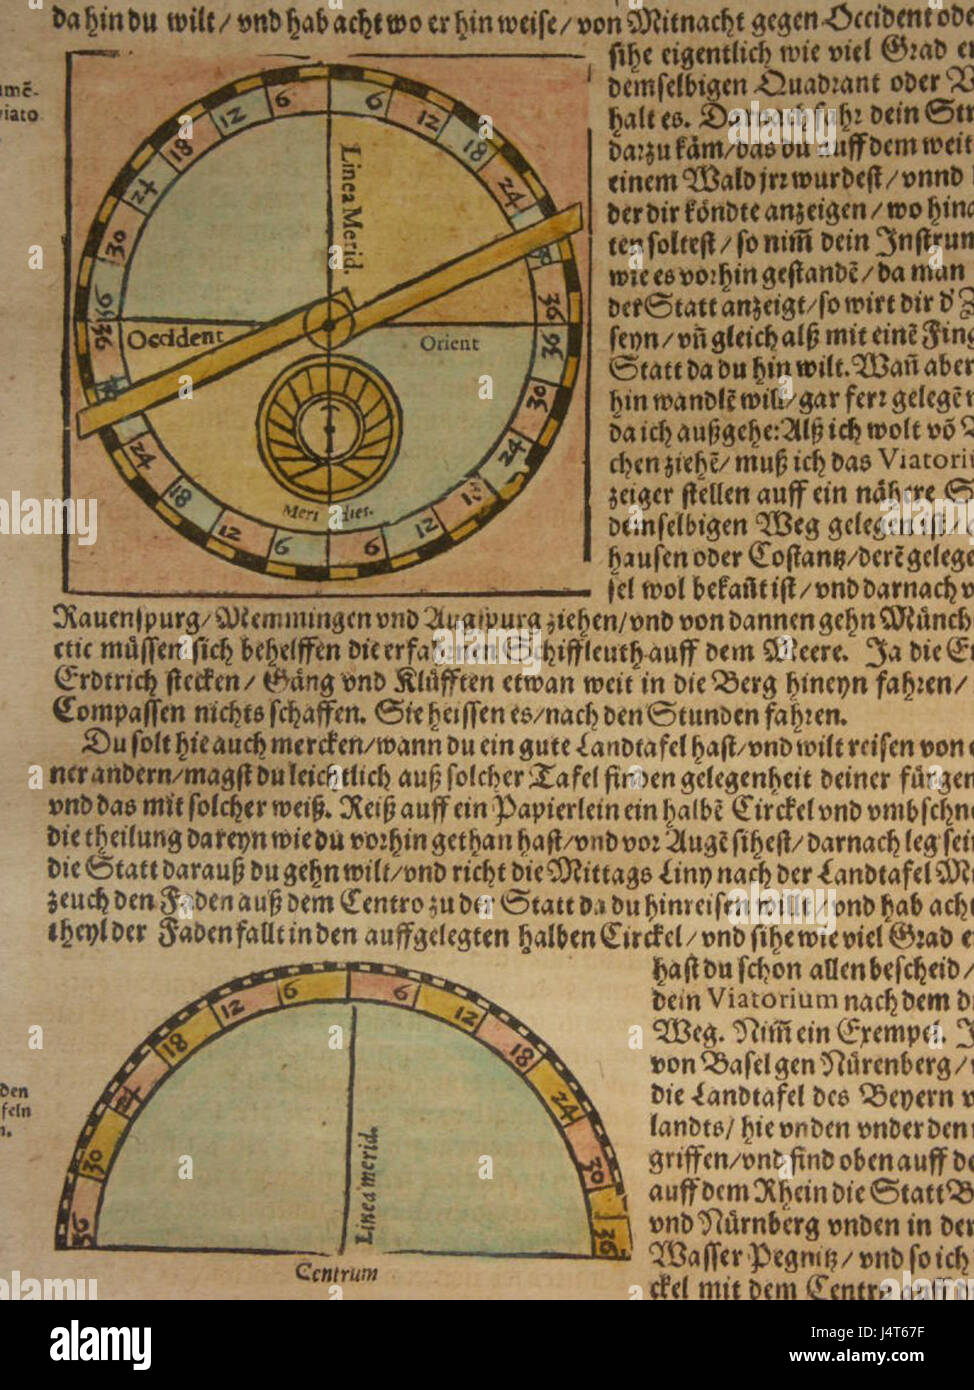 da hin du wilt / vnd hab acht wo er hin weise / von Mitnacht gegen Occident ode
sihe eigentlich wie viel Grad
demselbigen Quadrant oder
halt es. Darnach fahr dein
darzu käm / das du auff dem weit
einem Wald jrr wurdest / vnnd
der dir köndte anzeigen / wo hin
ten soltest / so nim̃ dein Instrum
wie es vorhin gestandẽ / da man
der Statt anzeigt / so wirt dir d'
seyn / vñ gleich alß mit einẽ Fing
Statt da du hin wilt. Wañ aber
hin wandlẽ wilt / gar ferr gelegẽ
da ich außgehe: Alß ich wolt võ
chen ziehẽ / muß ich das Viatori
zeiger stellen auff ein nähere
demselbigen Weg gelegen ist /
hausen oder Costantz / derẽ gelege
sel wol bekañt ist / vnd darnach
6 6 12 12 18 18 24 24 30 36 36 36 36 30 24 24 18 18 12 12 6 6
Linea Merid.
Occident
Orient
Meri dies.
viato
Rauenspurg / Memmingen vnd Augspurg ziehen / vnd von dannen gehn Münch
ctic müssen sich behelffen die erfahrnen Schiffleuth auff dem Meere. Ja die
Erdtrich stecken / Gäng vnd Klüfften etwan weit in die Berg hineyn fahren /
Compassen nichts schaffen. Sie heissen es / nach den Stunden fahren.
Du solt hie auch mercken / wann du ein gute Landtafel hast / vnd wilt reisen von
ner andern / magst du leichtlich auß solcher Tafel finden gelegenheit deiner fürgen
vnd das mit solcher weiß. Reiß auff ein Papierlein ein halbẽ Circkel vnd vmbschne
die theilung dareyn wie du vorhin gethan hast / vnd vor Augẽ sihest / darnach leg sein
die Statt darauß du gehn wilt / vnd richt die Mittags Liny nach der Landtafel
zeuch den Faden auß dem Centro zu der Statt da du hinreisen willt / vnd hab acht
theyl der Faden fallt in den auffgelegten halben Circkel / vnd sihe wie viel Grad
hast du schon allen bescheid /
dein Viatorium nach dem
Weg. Nim̃ ein Exempel.
von Basel gen Nürenberg /
die Landtafel des Beyern
landts / hie vnden vnder den
griffen / vnd find oben auff
auff dem Rhein die Statt
vnd Nürnberg vnden in der
Wasser Pegnitz / vnd so ich
ckel mit dem Centro auff
36 30 24 18 12 6 6 12 18 24 30 36
Linea merid.
Centrum
den
feln
n.
alamy stock photo
J4T67F
www.alamy.com